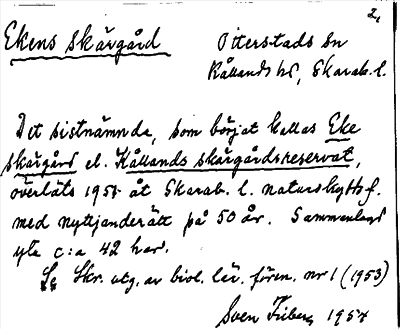 2.
Ekens skärgård
Otterstads sn
Kållands hd, Skarab. l.
Det sistnämnda, som börjat kallas Eke
skärgård el. Kållands skärgårdsreservat,
överläts 1951 åt Skarab. l. naturskyddsf.
med nyttjanderätt på 50 år. Sammanlagd
yta c:a 42 har.
Se Skr. utg. av biol. lär. fören. nr 1 (1953)
Sven 1954